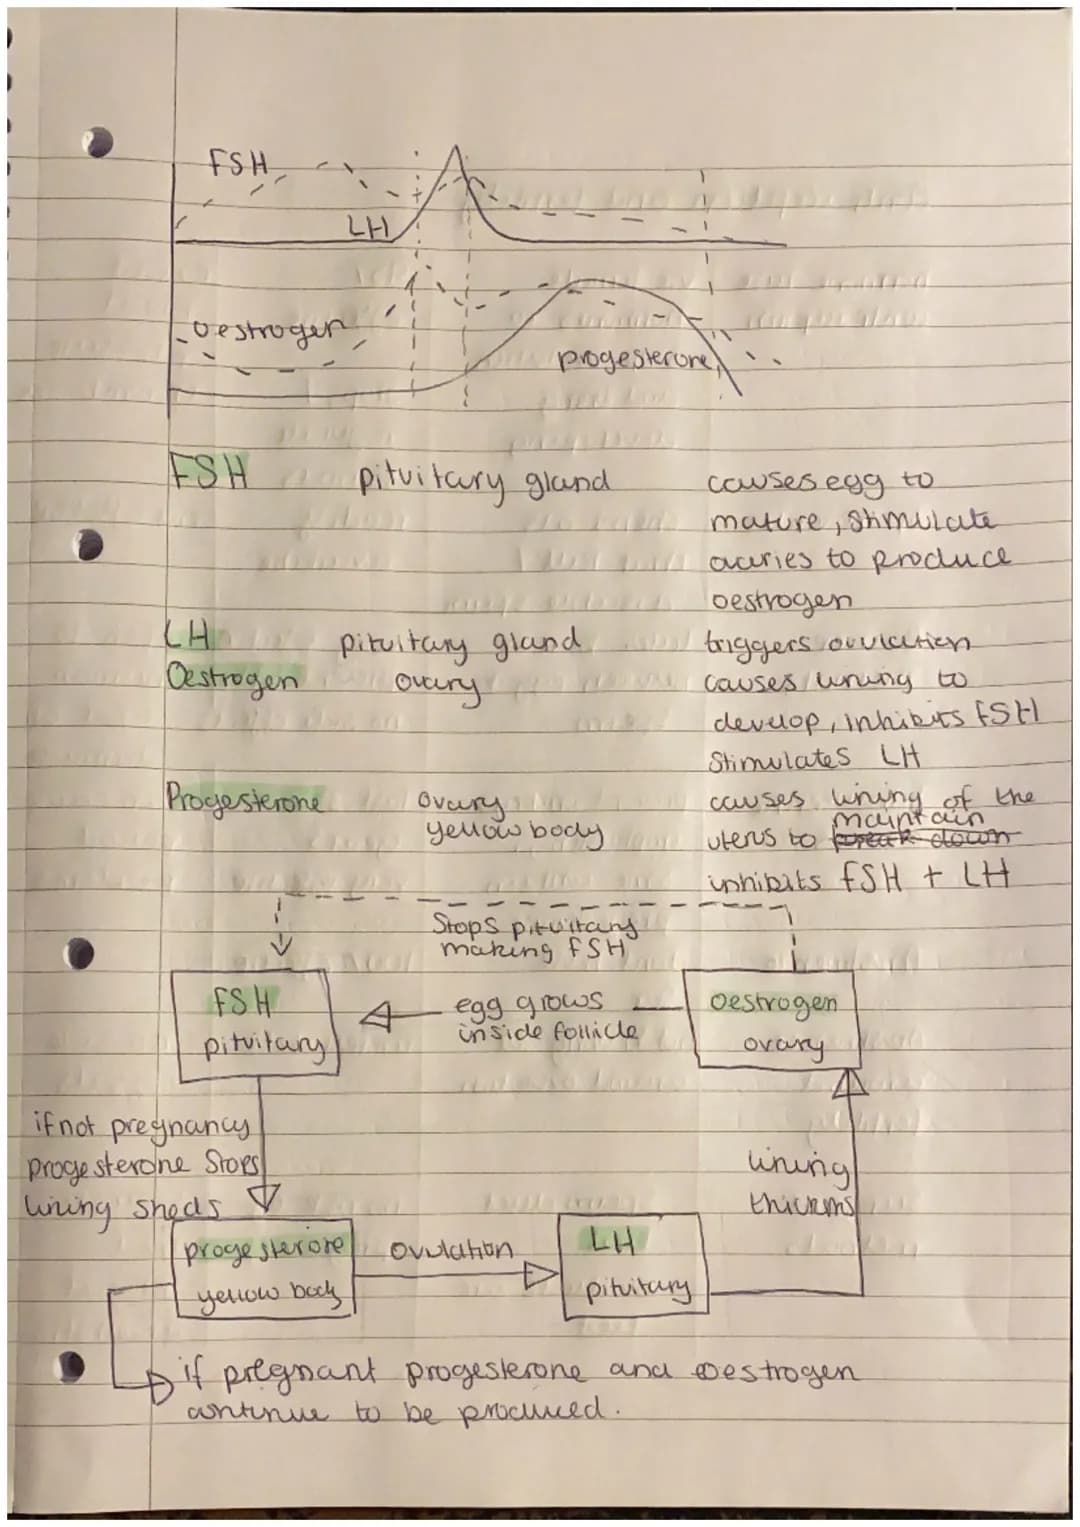 FSH
LH
oestrogen
progesterone
FSH pituitary gland causes egg to
mature, stimulate
ovaries to produce
oestrogen
LH pituitary gland triggers ovulation
Oestrogen ovary causes lining to
develop, inhibits FSH
stimulates LH
Progesterone ovary causes lining of the
yellow body uterus to break down maintain
inhibits FSH + LH
Stops pituitary
making FSH
FSH
pituitary
egg grows
inside follicle
oestrogen
ovary
if not pregnancy
progesterone stops
lining sheds
lining
thickens
progesterone
yellow body
ovulation
LH
pituitary
if pregnant progesterone and oestrogen
continue to be produced.